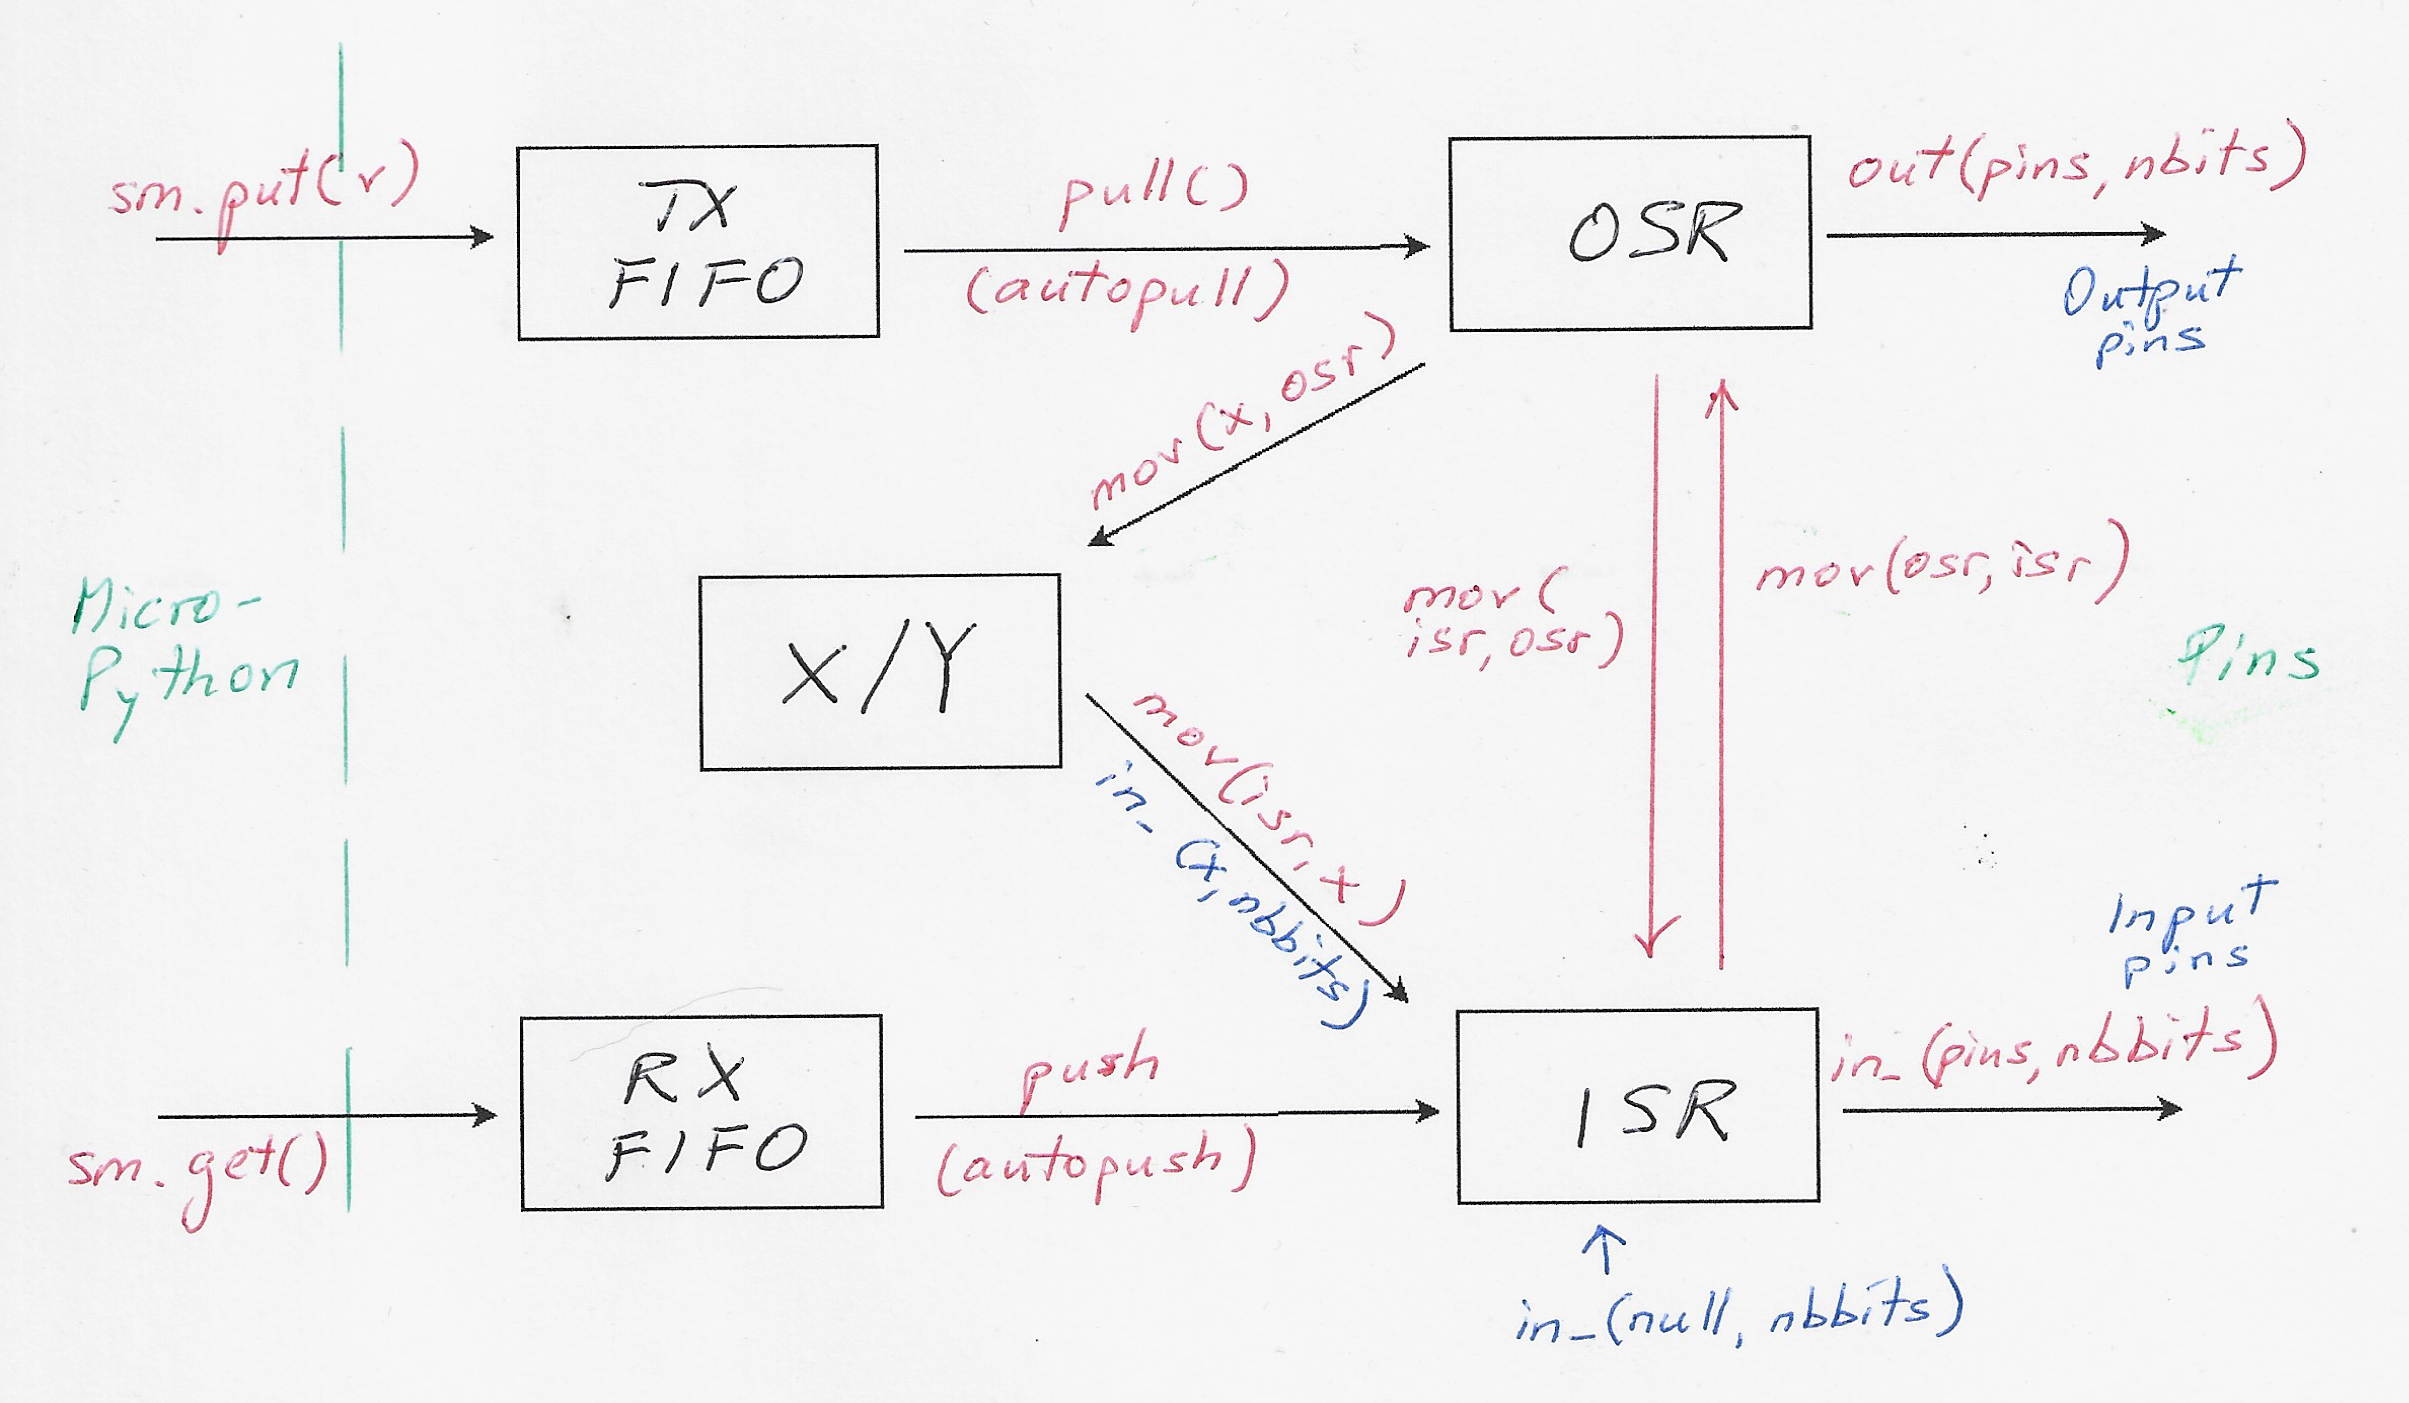 sm.put(v)
TX
FIFO
pull()
(autopull)
OSR
out(pins, nbits)
Output
pins
mov(x, osr)
Micro-
Python
X/Y
mov(
isr, osr)
mov(osr, isr)
Pins
mov(isr, x)
in_(x, nbbits)
Input
pins
sm.get()
RX
FIFO
push
(autopush)
ISR
in_(pins, nbbits)
in_(null, nbbits)